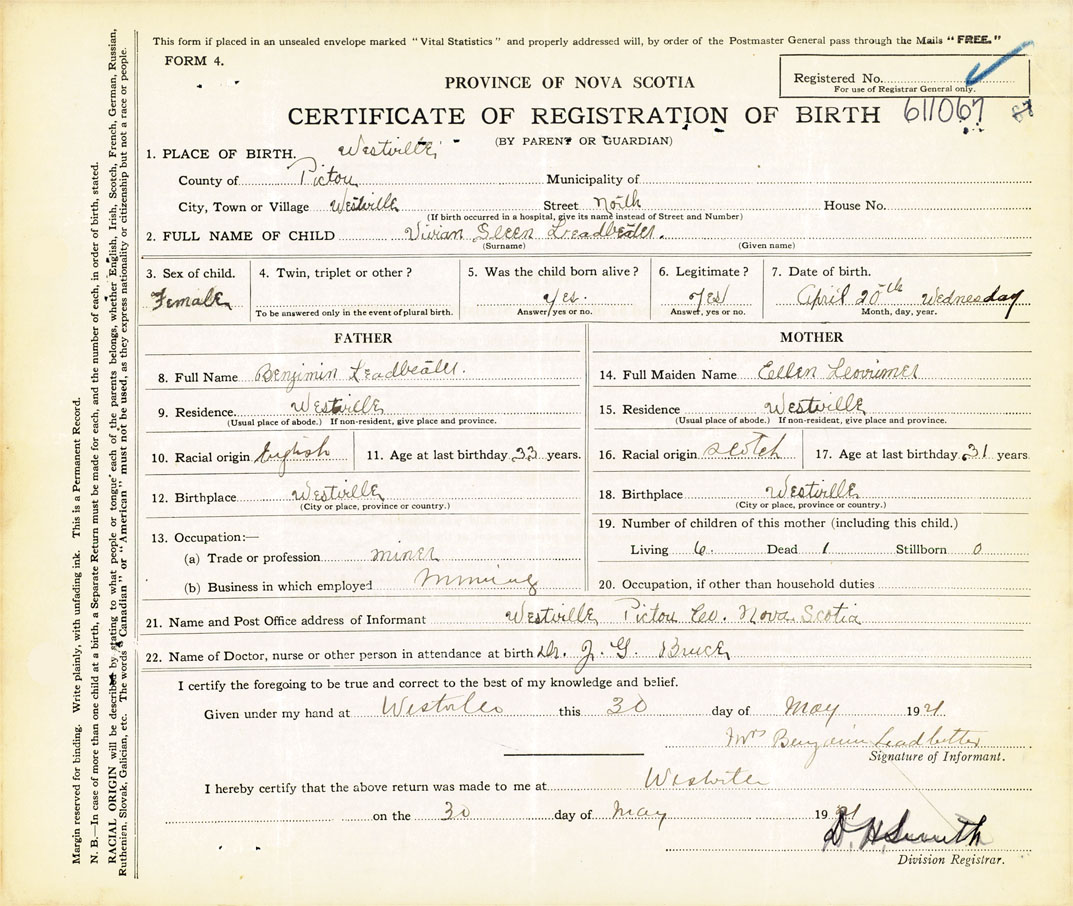 This form if placed in an unsealed envelope marked "Vital Statistics" and properly addressed will, by order of the Postmaster General pass through the Mails "FREE."
FORM 4.
Registered No.
For use of Registrar General only.
PROVINCE OF NOVA SCOTIA
CERTIFICATE OF REGISTRATION OF BIRTH 611067 87
(BY PARENT OR GUARDIAN)
1. PLACE OF BIRTH. Westville
County of Pictou Municipality of
City, Town or Village Westville Street North House No.
(If birth occurred in a hospital, give its name instead of Street and Number)
2. FULL NAME OF CHILD Vivian Leadbeater.
(Surname) (Given name)
3. Sex of child. 4. Twin, triplet or other? 5. Was the child born alive? 6. Legitimate? 7. Date of birth.
Female yes. yes April 20th Wednesday
To be answered only in the event of plural birth. Answer yes or no. Answer, yes or no. Month, day, year.
FATHER
8. Full Name Benjimin Leadbeater.
9. Residence. Westville
(Usual place of abode.) If non-resident, give place and province.
10. Racial origin English 11. Age at last birthday 33 years.
12. Birthplace Westville
(City or place, province or country.)
13. Occupation:—
(a) Trade or profession miner
(b) Business in which employed Mining
MOTHER
14. Full Maiden Name Ellen
15. Residence Westville
(Usual place of abode.) If non-resident, give place and province.
16. Racial origin Scotch 17. Age at last birthday 31 years
18. Birthplace Westville
(City or place, province or country.)
19. Number of children of this mother (including this child.)
Living 6. Dead 1 Stillborn 0
20. Occupation, if other than household duties
21. Name and Post Office address of Informant Westville Pictou Co. Nova Scotia
22. Name of Doctor, nurse or other person in attendance at birth Dr. J. G. Bruce
I certify the foregoing to be true and correct to the best of my knowledge and belief.
Given under my hand at Westville this 30 day of May 1921
Mrs Benjamin Leadbetter
Signature of Informant.
I hereby certify that the above return was made to me at Westville
on the 30 day of May 1921
D. H. Smith
Division Registrar.
Margin reserved for binding. Write plainly, with unfading ink. This is a Permanent Record.
N. B.—In case of more than one child at a birth, a Separate Return must be made for each, and the number of each, in order of birth, stated.
RACIAL ORIGIN will be described by stating to what people or tongue each of the parents belongs, whether English, Irish, Scotch, French, German, Russian,
Ruthenien, Slovak, Galician, etc. The words "Canadian" or "American" must not be used, as they express nationality or citizenship but not a race or people.